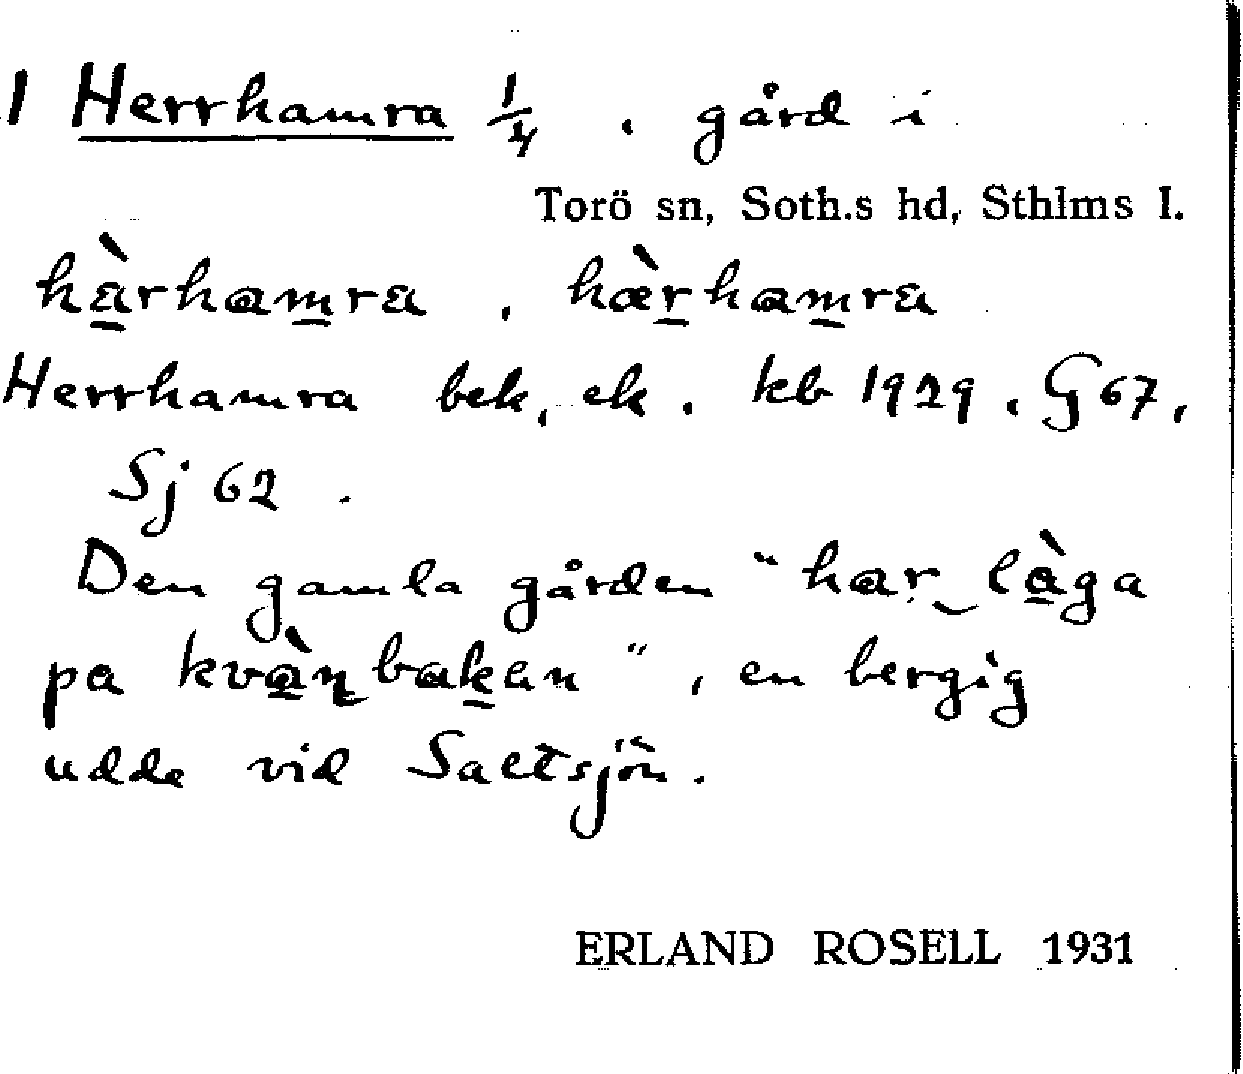 1 Herrhamra 1/4, gård i
Torö sn, Soth.s hd, Sthlms l.
hàrhamra, hæ̀rhamra
Herrhamra bek, ek. kb 1929, G 67,
Sj 62.
Den gamla gården "har làga
pa kvàɳbakan", en bergig
udde vid Saltsjön.
ERLAND ROSELL 1931